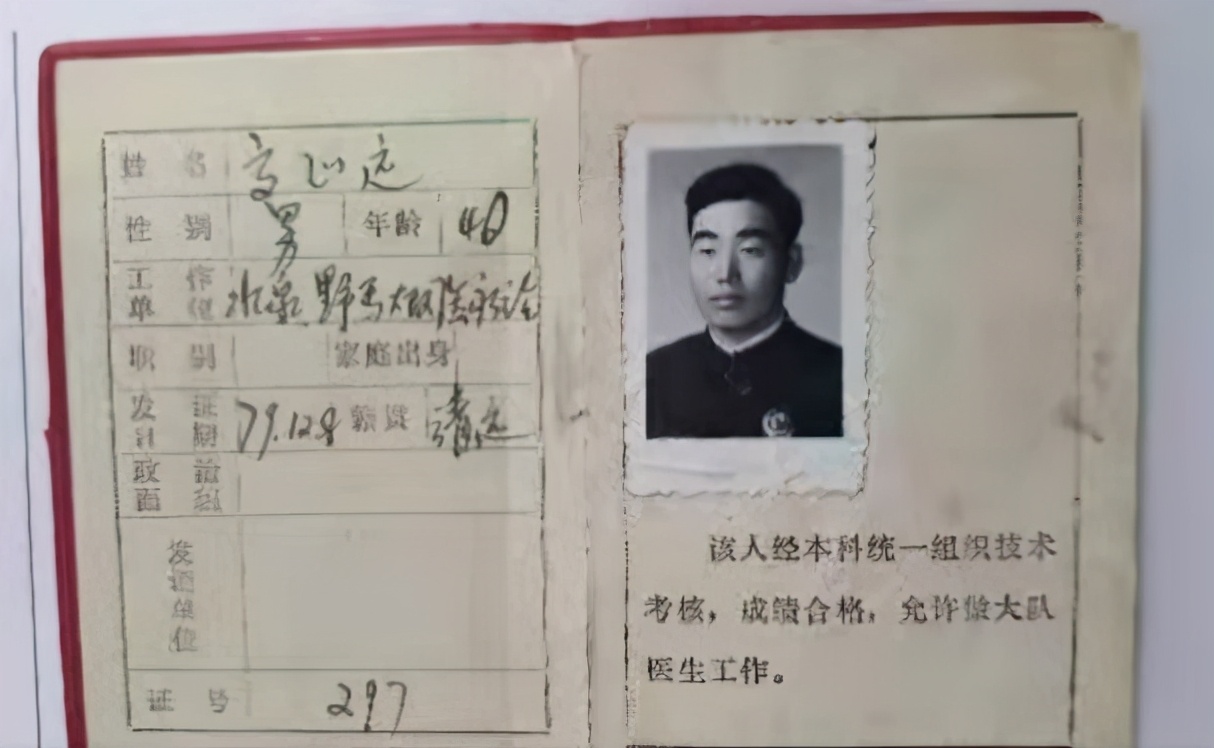 姓名 高心远
性别 男 年龄 40
工作单位 水泉野马大队医疗站
职别 家庭出身
发证日期 79.12.8 籍贯 靖远
政治面貌
发证单位
证号 297
该人经本科统一组织技术
考核，成绩合格，允许做大队
医生工作。